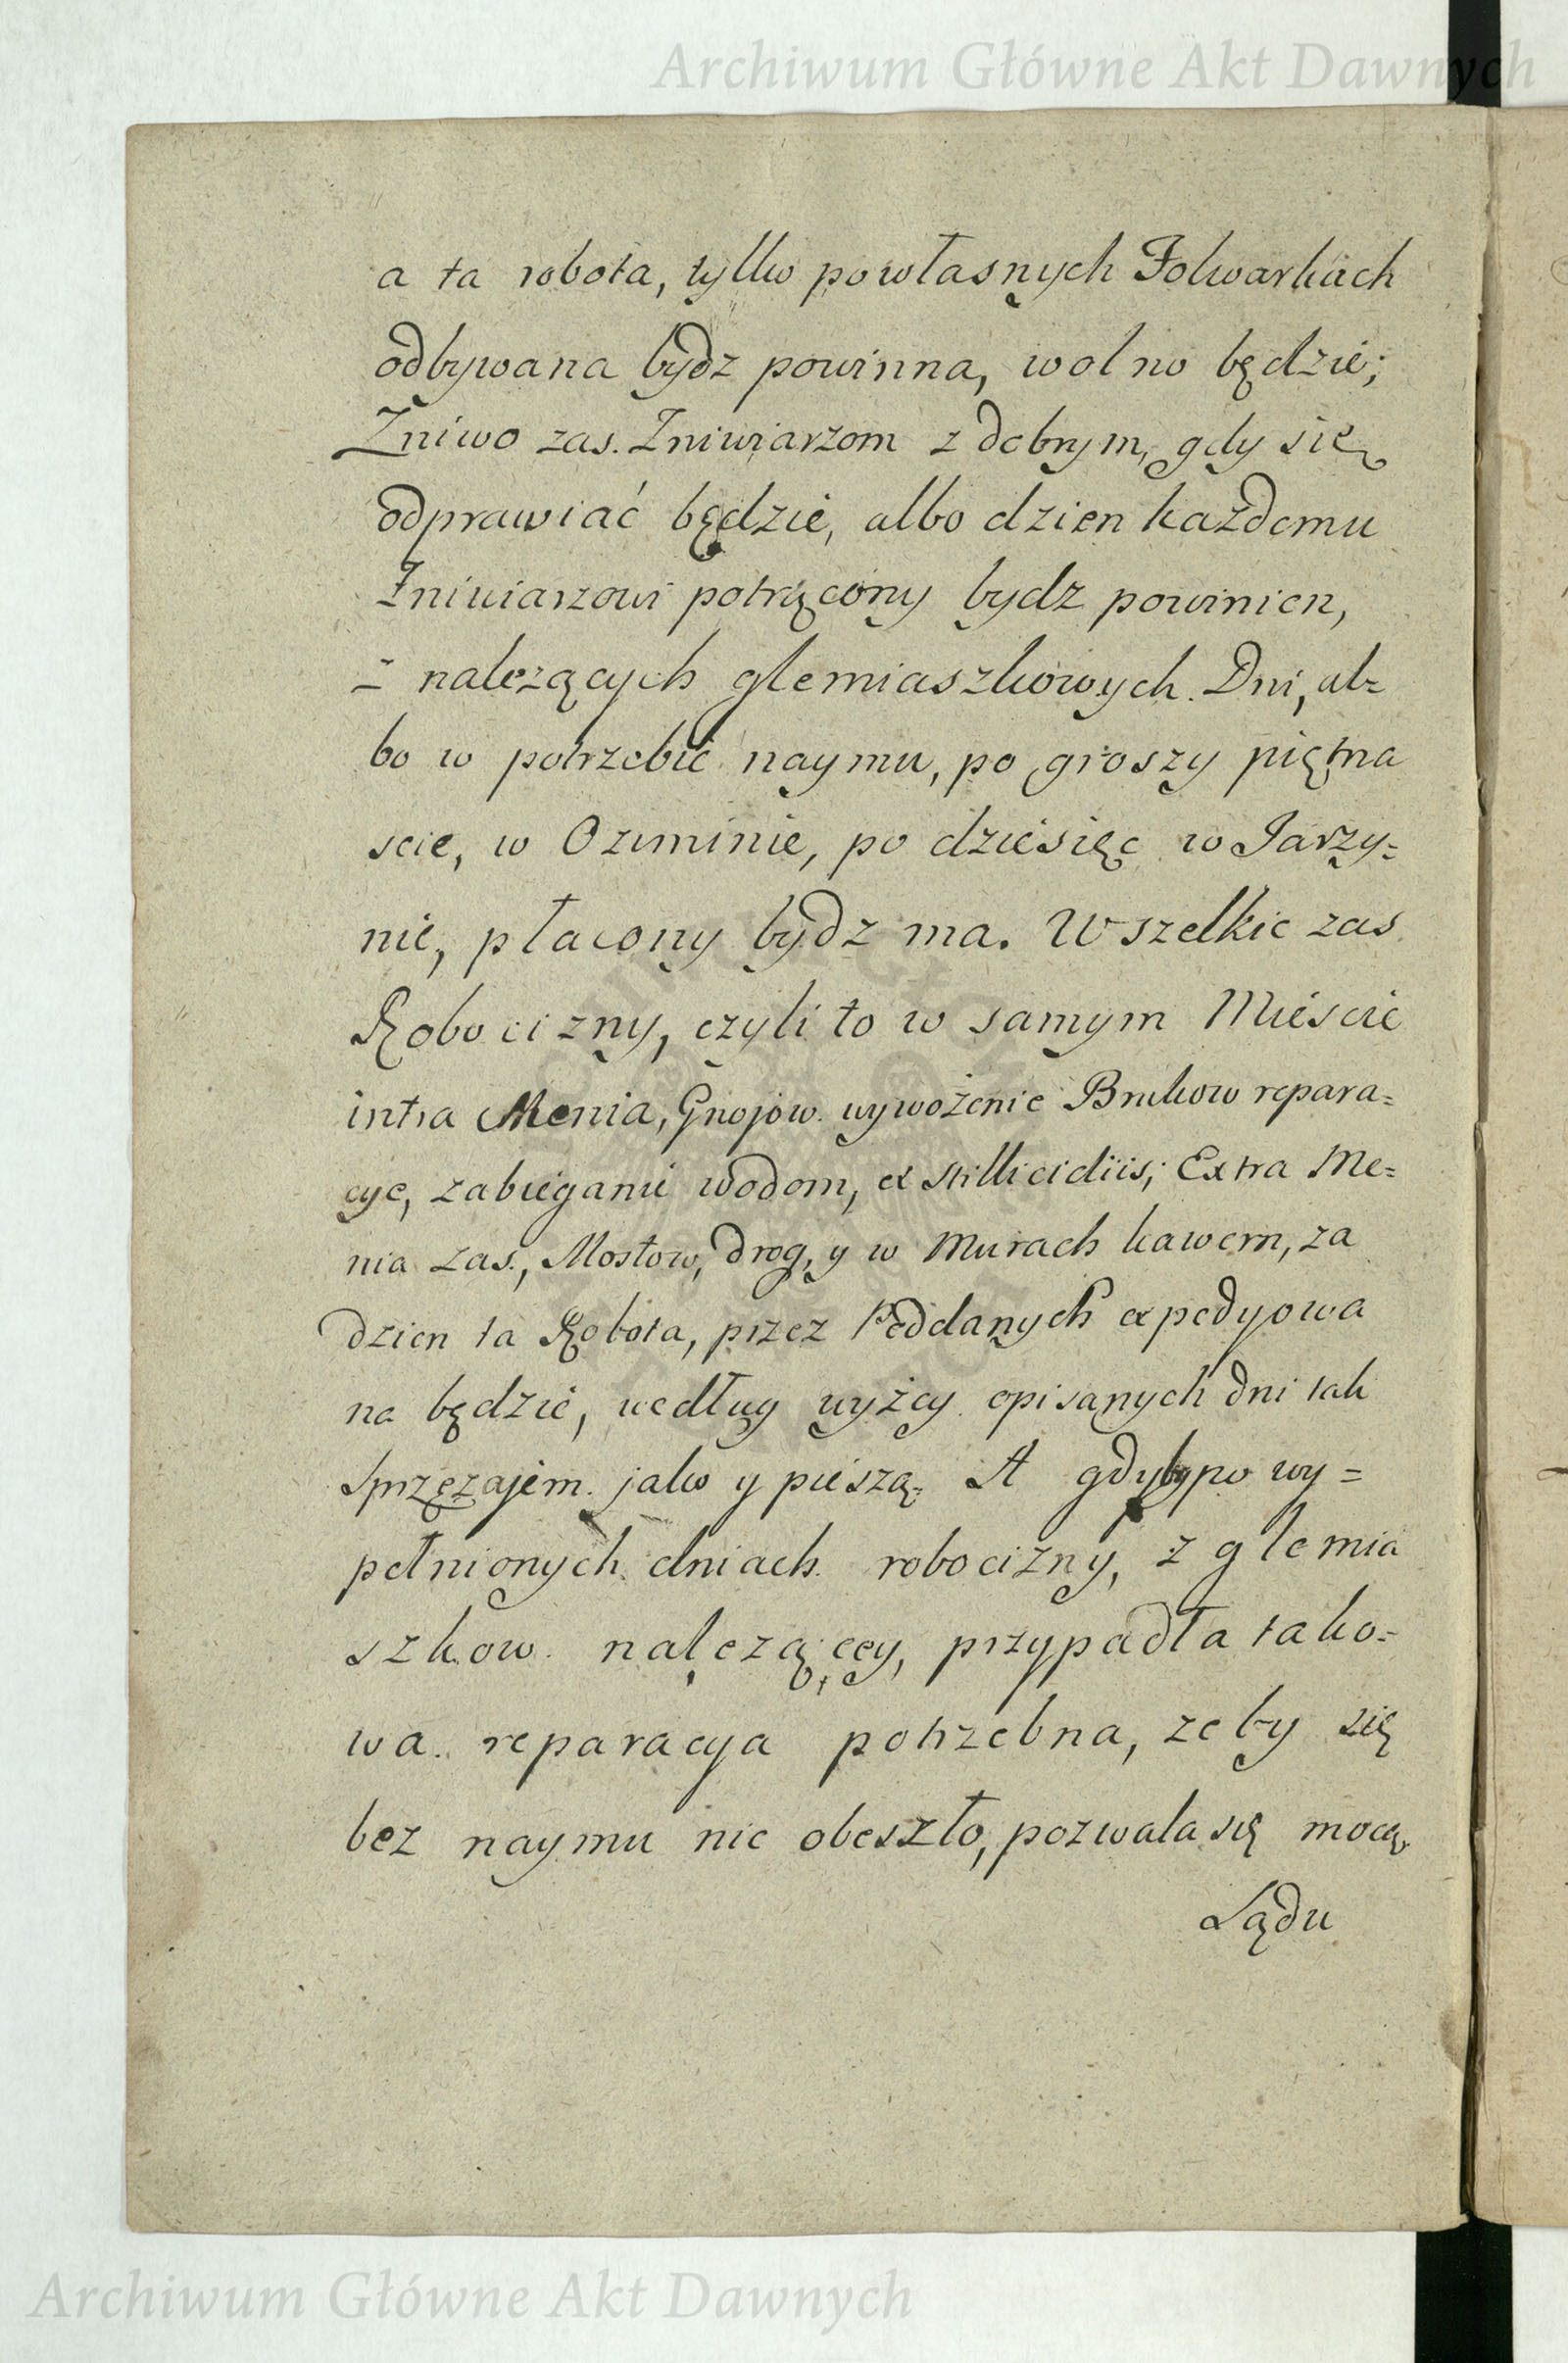 Archiwum Główne Akt Dawnych
a ta robota, tylko powłasnych Folwarkach
odbywana bydz powinna, wolno będzie;
Zniwo zas. Zniwiarzom z dobrym, gdy się
odprawiać będzie, albo dzien każdemu
Zniwiarzowi potrącony bydz powinien,
z nalezących glemiaszkowych. Dni, al=
bo w potrzebie naymu, po groszy piętna
scie, w Oziminie, po dziesięc w Jarzy=
nie, płacony bydz ma. Wszelkie zas
Robocizny, czyli to w samym Mieście
intra Menia, Gnojow. wywożenie Brukow repara=
cye, zabieganie wodom, ex stillicidiis; Extra Me=
nia zas., Mostow, drog, y w Murach kawern, za
dzien ta Robota, przez Poddanych expedyowa
na będzie, według wyżey opisanych dni tak
sprzęzajem. jako y pieszą= A gdyby po wy=
pełnionych dniach robocizny, z glemia
szkow. nalezącey, przypadła tako=
wa. reparacya potrzebna, zeby się
bez naymu nie obeszło, pozwala się mocą
Sądu
Archiwum Główne Akt Dawnych